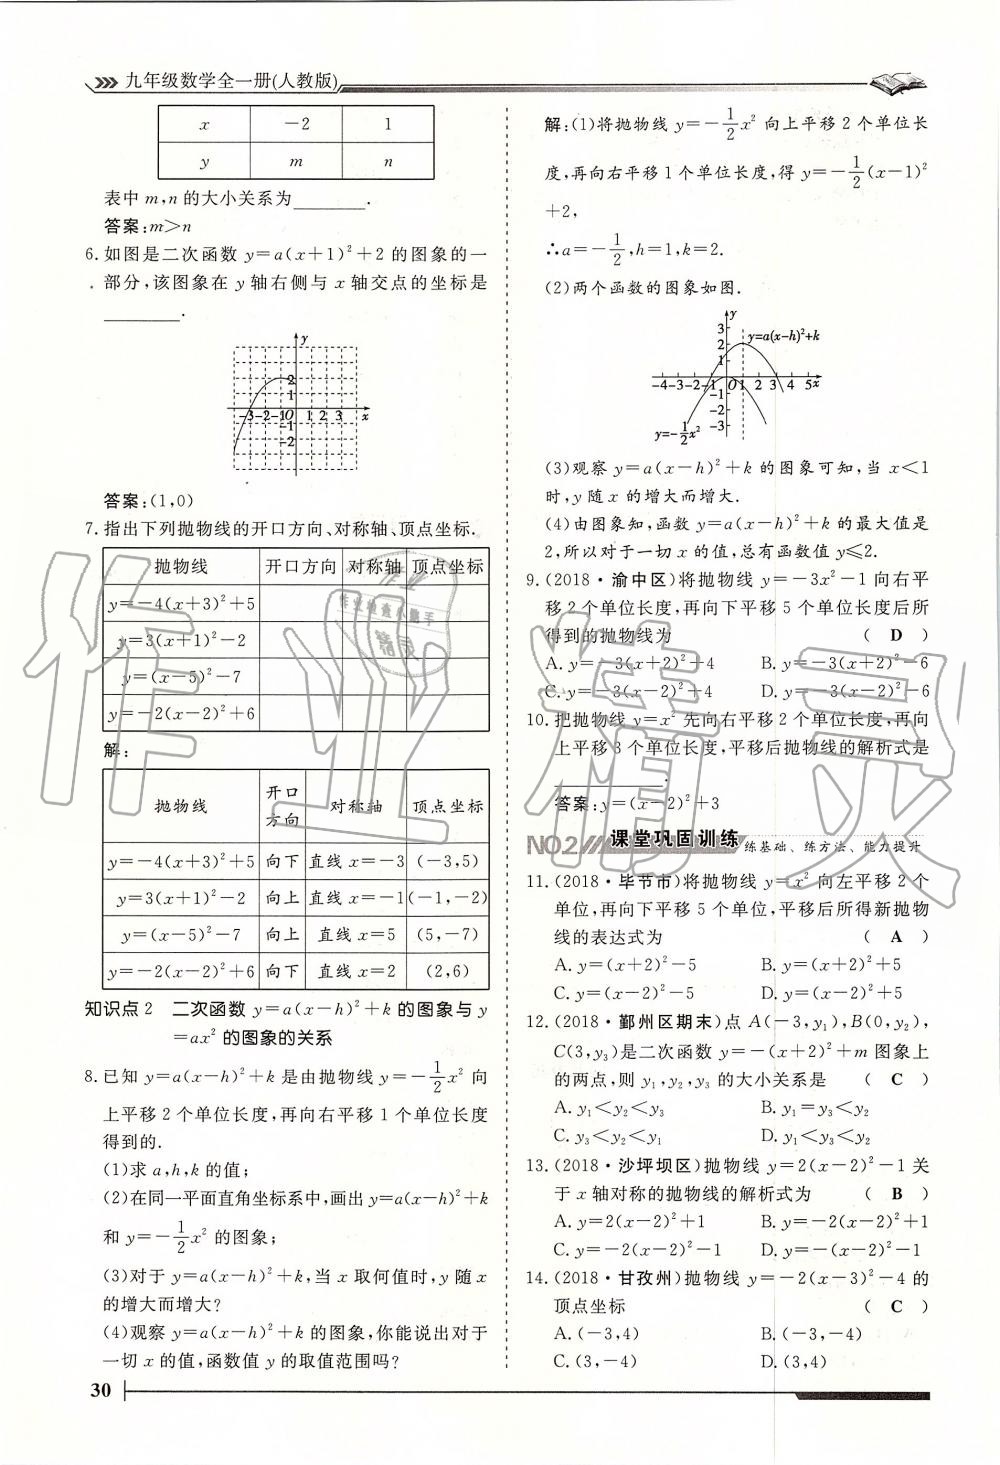 九年级数学全一册(人教版)
x -2 1
y m n
表中 m,n 的大小关系为________.
答案:m>n
6. 如图是二次函数 y=a(x+1)²+2 的图象的一
部分,该图象在 y 轴右侧与 x 轴交点的坐标是
________.
y
2
-3 -2 -1 O 1 2 3 x
-1
-2
答案:(1,0)
7. 指出下列抛物线的开口方向、对称轴、顶点坐标.
抛物线 开口方向 对称轴 顶点坐标
y=-4(x+3)²+5
y=3(x+1)²-2
y=(x-5)²-7
y=-2(x-2)²+6
解:
抛物线 开口方向 对称轴 顶点坐标
y=-4(x+3)²+5 向下 直线 x=-3 (-3,5)
y=3(x+1)²-2 向上 直线 x=-1 (-1,-2)
y=(x-5)²-7 向上 直线 x=5 (5,-7)
y=-2(x-2)²+6 向下 直线 x=2 (2,6)
知识点 2 二次函数 y=a(x-h)²+k 的图象与 y
=ax² 的图象的关系
8. 已知 y=a(x-h)²+k 是由抛物线 y=-1/2x² 向
上平移 2 个单位长度,再向右平移 1 个单位长度
得到的.
(1)求 a,h,k 的值;
(2)在同一平面直角坐标系中,画出 y=a(x-h)²+k
和 y=-1/2x² 的图象;
(3)对于 y=a(x-h)²+k,当 x 取何值时,y 随 x
的增大而增大?
(4)观察 y=a(x-h)²+k 的图象,你能说出对于
一切 x 的值,函数值 y 的取值范围吗?
30
解:(1)将抛物线 y=-1/2x² 向上平移 2 个单位长
度,再向右平移 1 个单位长度,得 y=-1/2(x-1)²
+2,
∴a=-1/2,h=1,k=2.
(2)两个函数的图象如图.
y
3
2 y=a(x-h)²+k
1
-4 -3 -2 -1 O 1 2 3 4 5 x
-1
-2
y=-1/2x² -3
(3)观察 y=a(x-h)²+k 的图象可知,当 x<1
时,y 随 x 的增大而增大.
(4)由图象知,函数 y=a(x-h)²+k 的最大值是
2,所以对于一切 x 的值,总有函数值 y⩽2.
9. (2018·渝中区)将抛物线 y=-3x²-1 向右平
移 2 个单位长度,再向下平移 5 个单位长度后所
得到的抛物线为 ( D )
A. y=-3(x+2)²+4 B. y=-3(x+2)²-6
C. y=-3(x-2)²+4 D. y=-3(x-2)²-6
10. 把抛物线 y=x² 先向右平移 2 个单位长度,再向
上平移 3 个单位长度,平移后抛物线的解析式是
________.
答案:y=(x-2)²+3
NO.2 课堂巩固训练 练基础、练方法、能力提升
11. (2018·毕节市)将抛物线 y=x² 向左平移 2 个
单位,再向下平移 5 个单位,平移后所得新抛物
线的表达式为 ( A )
A. y=(x+2)²-5 B. y=(x+2)²+5
C. y=(x-2)²-5 D. y=(x-2)²+5
12. (2018·鄞州区期末)点 A(-3,y₁),B(0,y₂),
C(3,y₃)是二次函数 y=-(x+2)²+m 图象上
的两点,则 y₁,y₂,y₃ 的大小关系是 ( C )
A. y₁<y₂<y₃ B. y₁=y₃<y₂
C. y₃<y₂<y₁ D. y₁<y₃<y₂
13. (2018·沙坪坝区)抛物线 y=2(x-2)²-1 关
于 x 轴对称的抛物线的解析式为 ( B )
A. y=2(x-2)²+1 B. y=-2(x-2)²+1
C. y=-2(x-2)²-1 D. y=-(x-2)²-1
14. (2018·甘孜州)抛物线 y=-2(x-3)²-4 的
顶点坐标 ( C )
A. (-3,4) B. (-3,-4)
C. (3,-4) D. (3,4)
作业精灵